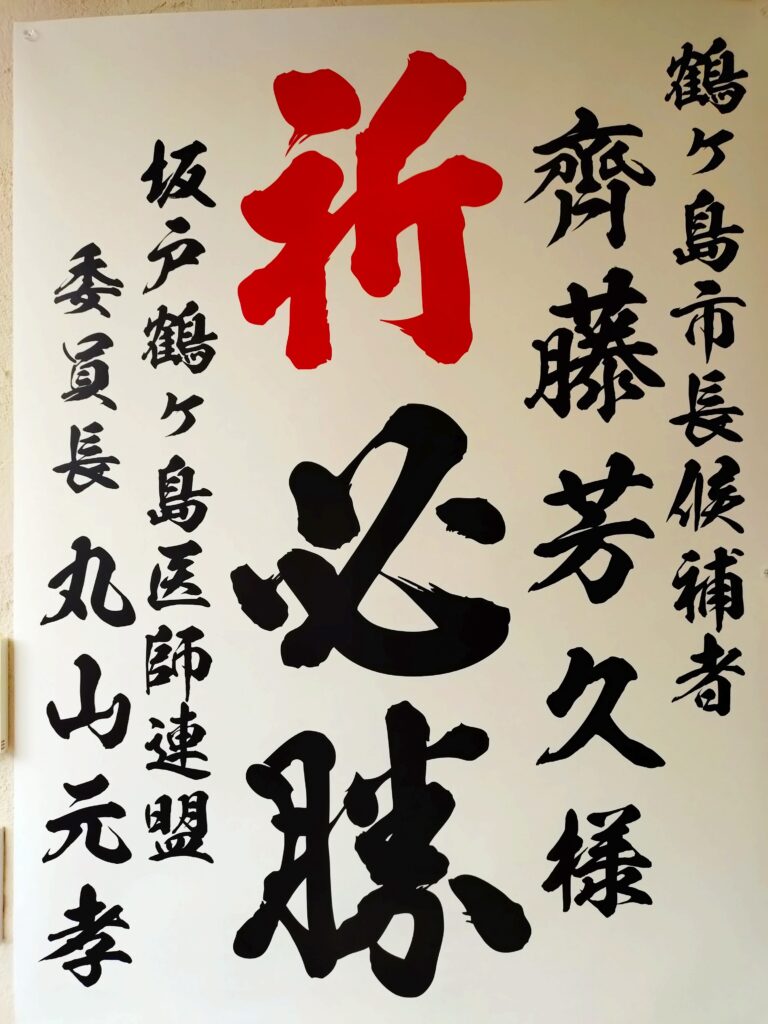 鶴ヶ島市長候補者
齊藤芳久様
祈必勝
坂戸鶴ヶ島医師連盟
委員長 丸山元孝